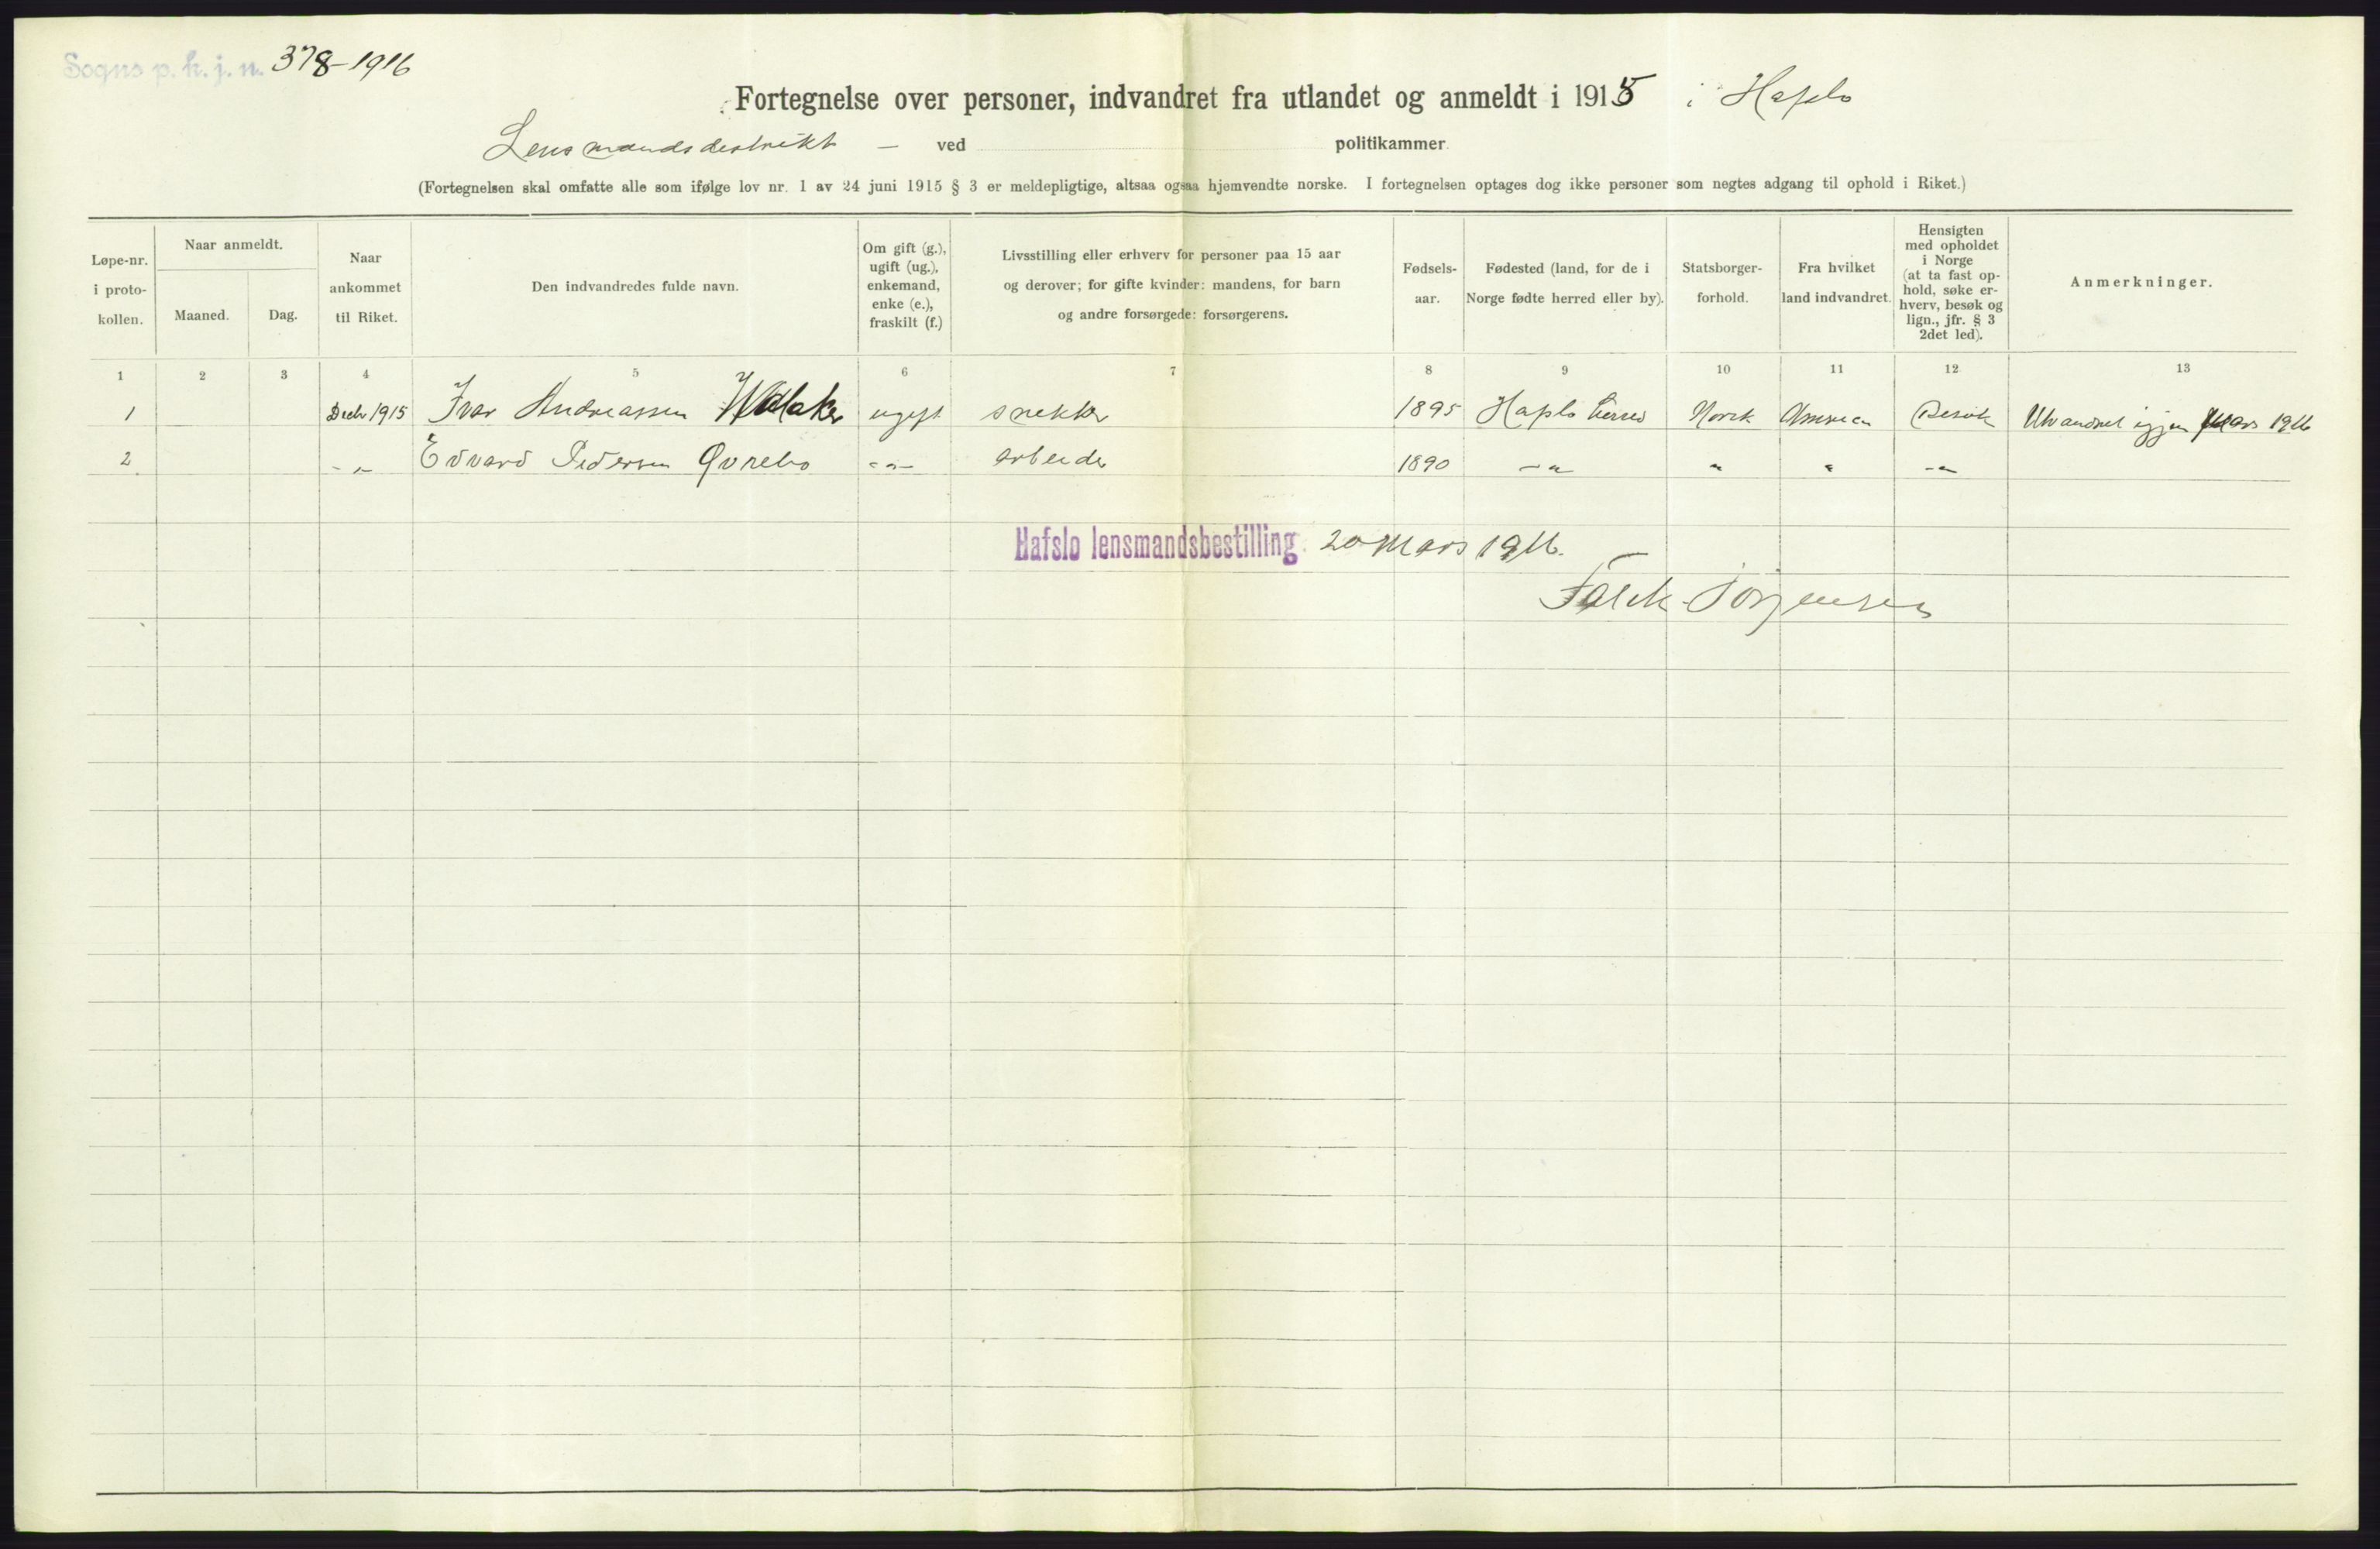 Sogns p. k. j. n. 378-1916
Fortegnelse over personer, indvandret fra utlandet og anmeldt i 1915 i Hafslo
Lensmandsdestrikt — ved politikammer
(Fortegnelsen skal omfatte alle som ifølge lov nr. 1 av 24 juni 1915 § 3 er meldepligtige, altsaa ogsaa hjemvendte norske. I fortegnelsen optages dog ikke personer som negtes adgang til ophold i Riket.)
Løpe-nr. i proto- kollen.
Naar anmeldt.
Maaned. Dag.
Naar ankommet til Riket.
Den indvandredes fulde navn.
Om gift (g.), ugift (ug.), enkemand, enke (e.), fraskilt (f.)
Livsstilling eller erhverv for personer paa 15 aar og derover; for gifte kvinder: mandens, for barn og andre forsørgede: forsørgerens.
Fødsels- aar.
Fødested (land, for de i Norge fødte herred eller by).
Statsborger- forhold.
Fra hvilket land indvandret.
Hensigten med opholdet i Norge (at ta fast op- hold, søke er- hverv, besøk og lign., jfr. § 3 2det led).
Anmerkninger.
1 2 3 4 5 6 7 8 9 10 11 12 13
1 Decbr 1915 Ivar Andreassen Walaker ugift snekker 1895 Hafslo herred Norsk America Besøk Utvandret igjen Mars 1916
2 -"- Edvard Pedersen Qvrebø -"- arbeider 1890 -"- " " -"-
Hafslo lensmandsbestilling 20 Mars 1916.
Falck-Jørgensen